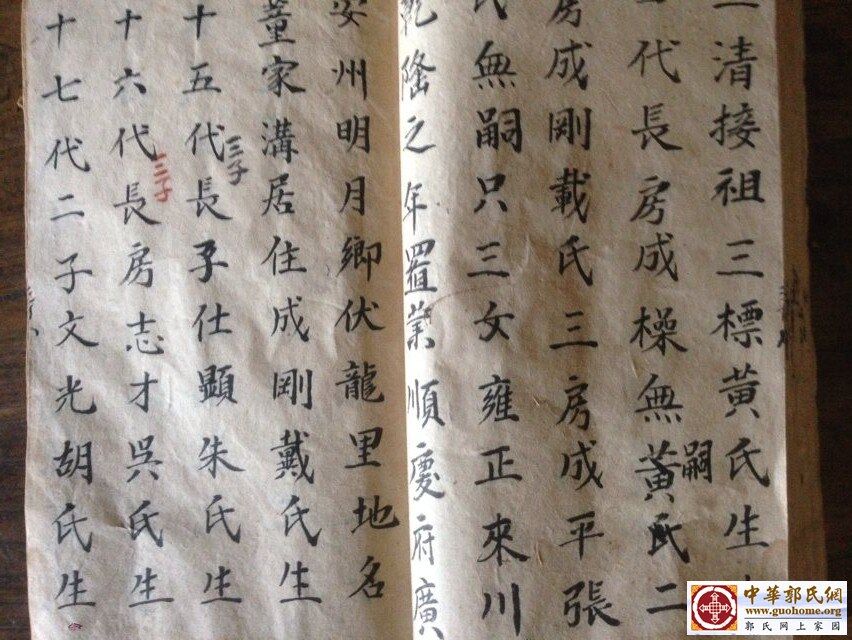 清接祖三標黃氏生
代長房成橾無嗣黃氏二
房成剛載氏三房成平張
氏無嗣只三女雍正來川
乾隆之年置業順慶府廣
安州明月鄉伏龍里地名
董家溝居住成剛戴氏生
十五代長子仕顯朱氏生
三子
十六代長房志才吳氏生
三子
十七代二子文光胡氏生
中華郭氏網
www.guohome.org
郭氏网上家园